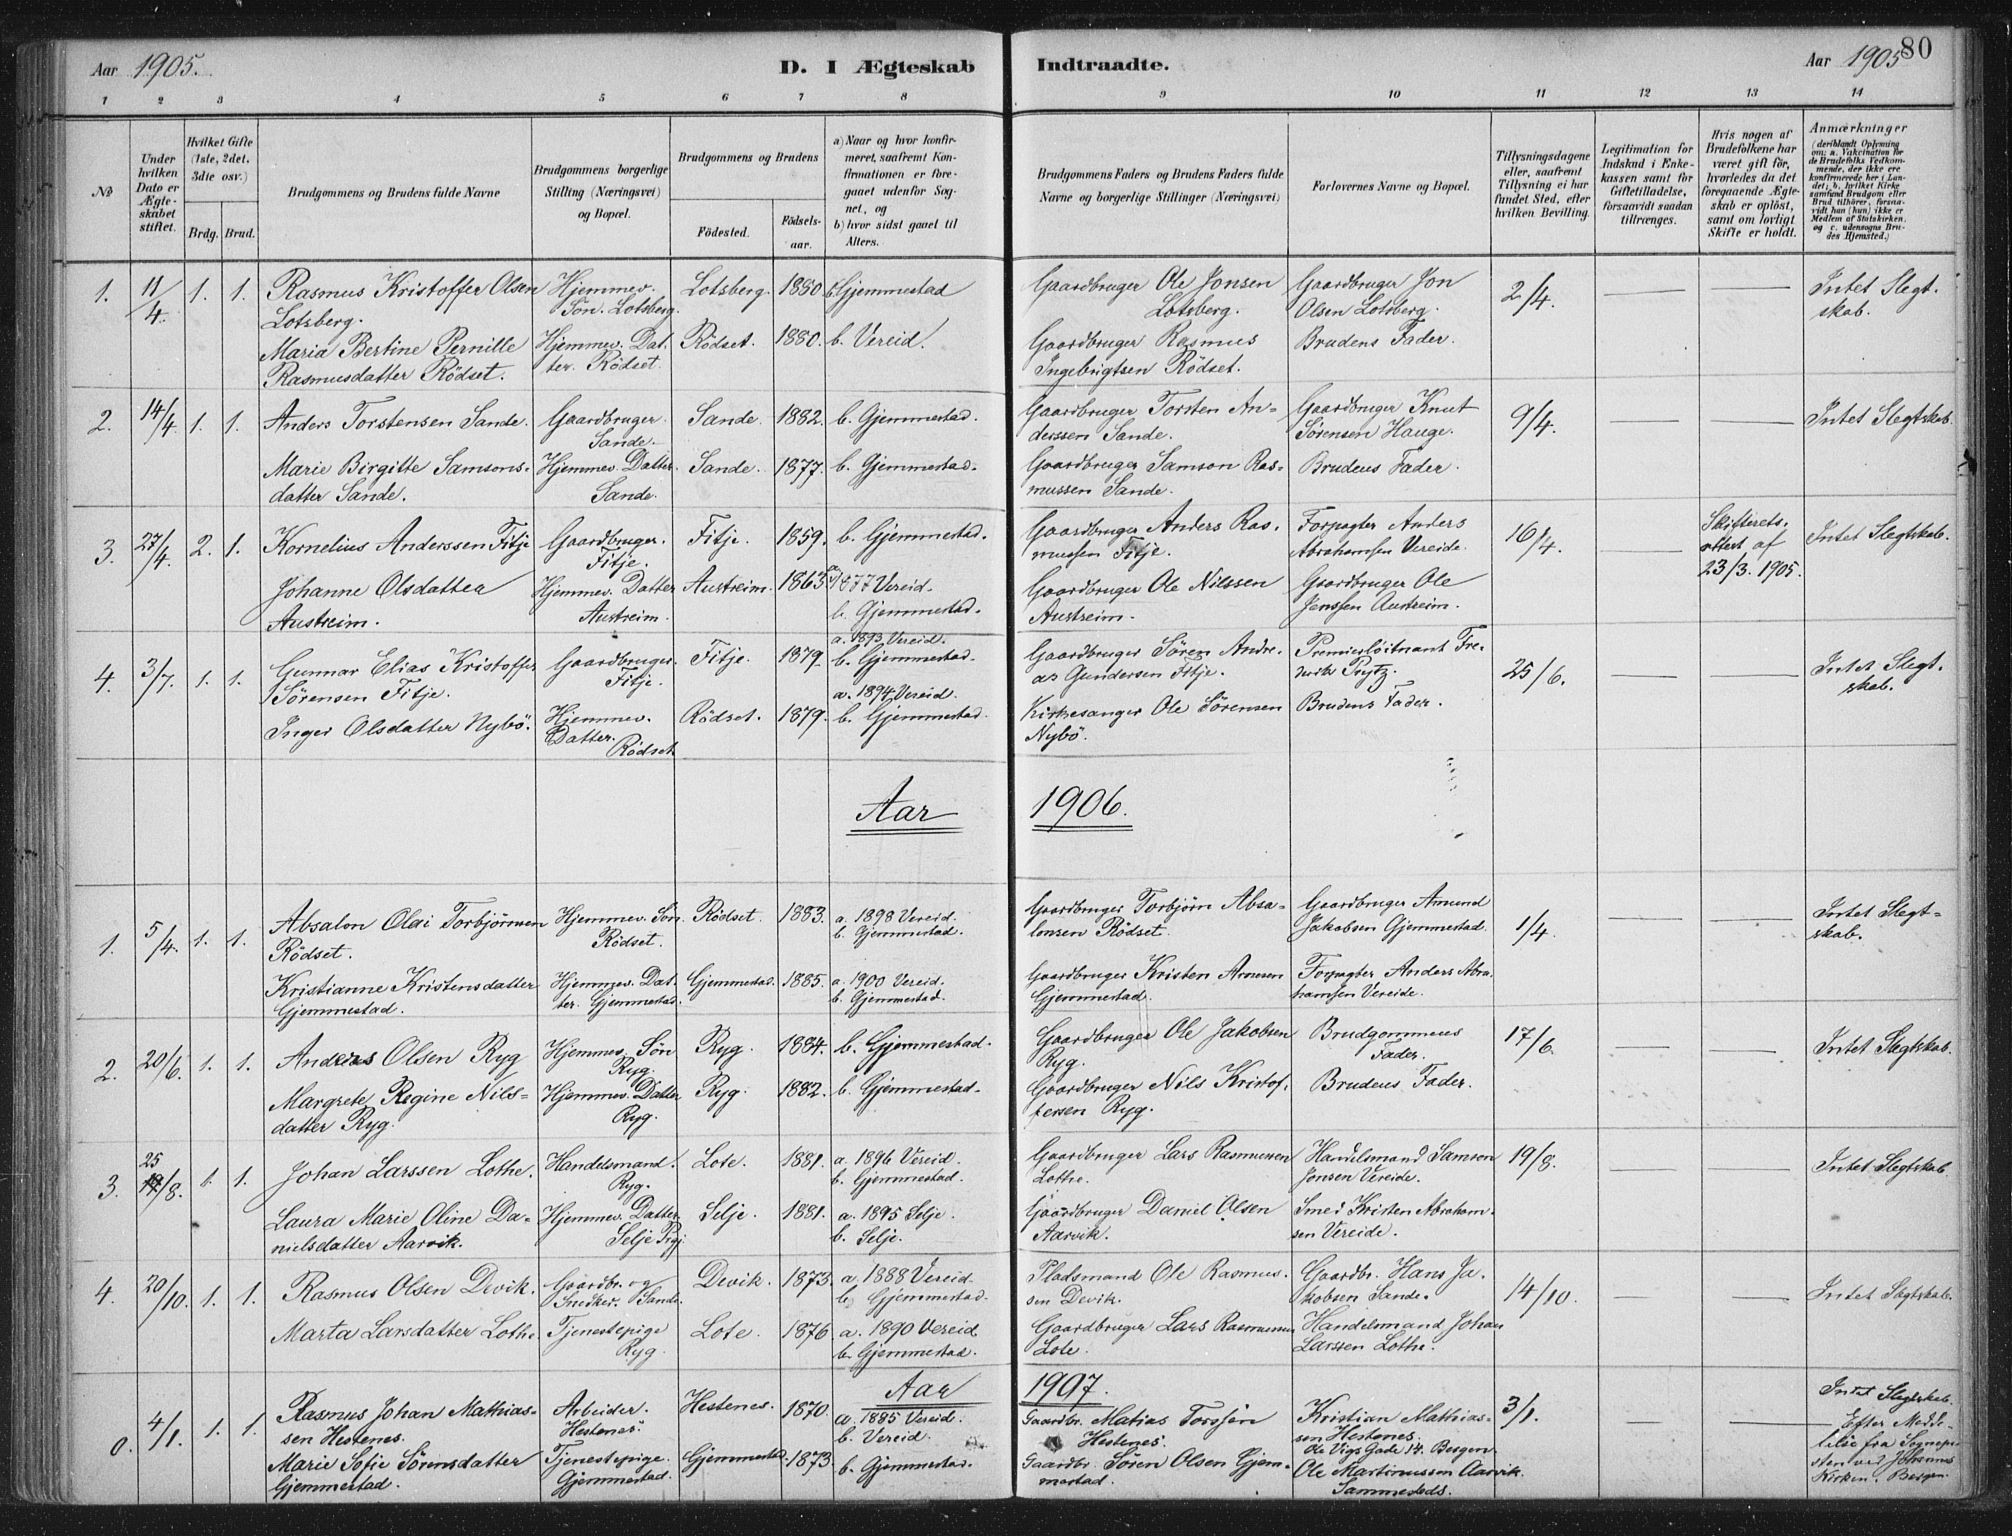 Aar 1905.
D. I Ægteskab Indtraadte.
Aar 1905 80
1 2 3 4 5 6 7 8 9 10 11 12 13 14
No
Under hvilken Dato er Ægteskabet stiftet.
Hvilket Gifte (1ste, 2det, 3die osv.)
Brdg. Brud.
Brudgommens og Brudens fulde Navne
Brudgommens borgerlige Stilling (Næringsvei) og Bopæl.
Brudgommens og Brudens
Födested.
Födselsaar.
a) Naar og hvor konfirmeret, saafremt Konfirmationen er foregaaet udenfor Sognet, og
b) hvor sidst gaaet til Alters.
Brudgommens Faders og Brudens Faders fulde Navne og borgerlige Stillinger (Næringsvei)
Forlovernes Navne og Bopæl.
Tillysningsdagene eller, saafremt Tillysning ei har fundet Sted, efter hvilken Bevilling.
Legitimation for Indskud i Enkekassen samt for Giftetilladelse, forsaavidt saadan tiltrænges.
Hvis nogen af Brudefolkene har været gift før, hvorledes da det foregaaende Ægteskab er oplöst, samt om lovligt Skifte er holdt.
Anmærkninger (deriblandt Oplysning om: a. Vakcination for de Brudefolks Vedkommende, der ikke ere konfirmerede her i Landet; b. hvilket Kirkesamfund Brudgom eller Brud tilhörer, forsaavidt han (hun) ikke er Medlem af Statskirken, og c. udensogns Brudes Hjemsted.)
1. 11/4. 1. 1. Rasmus Kristoffer Olsen Lotsberg. Hjemmev. Søn. Lotsberg. Lotsberg. 1880 b. Gjemmestad Gaardbruger Ole Jonsen Lotsberg. Gaardbruger Jon Olsen Lotsberg. 2/4. Intet Slegtskab.
Maria Bertine Pernille Rasmusdatter Rödset. Hjemmev. Datter. Rödset. Rödset. 1880. b. Vereid. Gaardbruger Rasmus Ingebrigtsen Rödset. Brudens Fader.
2. 14/4 1. 1. Anders Torstensen Sande. Gaardbruger. Sande. Sande. 1882. b. Gjemmestad. Gaardbruger Torsten Anderssen Sande. Gaardbruger Knut Sørensen Hauge. 9/4. Intet Slegtskab.
Marie Birgitte Samsonsdatter Sande. Hjemmev. Datter. Sande. Sande. 1877. b. Gjemmestad. Gaardbruger Samson Rasmussen Sande. Brudens Fader.
3. 27/4. 2. 1. Kornelius Anderssen Fitje Gaardbruger. Fitje. Fitje. 1859. b. Gjemmestad. Gaardbruger Anders Rasmussen Fitje. Forpagter Anders Abrahamsen Vereide. 16/4. Skifteretsattest af 23/3. 1905. Intet Slegtskab.
Johanne Olsdatter Austreim. Hjemmev. Datter Austreim. Austreim. 1863 a. 1877 Vereid. b. Gjemmestad. Gaardbruger Ole Nilssen Austreim. Gaardbruger Ole Jenssen Austreim.
4. 3/7. 1. 1. Gunnar Elias Kristoffer Sörensen Fitje. Gaardbruger. Fitje. Fitje. 1879. a. 1893 Vereid. b. Gjemmestad. Gaardbruger Sören Andreas Gundersen Fitje. Premierløitnant Fredrik Prytz. 25/6. Intet Slegtskab.
Inger Olsdatter Nybö. Hjemmev. Datter. Rödset. Rödset. 1879. a. 1894 Vereid. b. Gjemmestad. Kirkesanger Ole Sörensen Nybö. Brudens Fader.
Aar 1906.
1. 5/4. 1. 1. Absalon Olai Torbjörnsen Rödset. Hjemmev. Søn. Rödset. Rödset. 1883. a. 1898 Vereid. b. Gjemmestad. Gaardbruger Torbjörn Absalonsen Rödset. Gaardbruger Amund Jakobsen Gjemmestad. 1/4. Intet Slegtskab.
Kristianne Kristensdatter Gjemmestad. Hjemmev. Datter. Gjemmestad. Gjemmestad. 1885. a. 1900 Vereid. b. Gjemmestad. Gaardbruger Kristen Arnesen Gjemmestad. Forpagter Anders Abrahamsen Vereide.
2. 20/6. 1. 1. Anders Olsen Ryg Hjemmev. Søn Ryg. Ryg. 1884. b. Gjemmestad. Gaardbruger Ole Jakobsen Ryg. Brudgommens Fader. 17/6. Intet Slegtskab.
Margrete Regine Nilsdatter Ryg. Hjemmev. Datter Ryg. Ryg. 1882. b. Gjemmestad. Gaardbruger Nils Kristofersen Ryg. Brudens Fader.
3. 25/8. 1. 1. Johan Larssen Lothe. Handelsmand. Ryg. Lote. 1881. a. 1896 Vereid. b. Gjemmestad. Gaardbruger Lars Rasmussen Lothe. Handelsmand Samson Jonsen Vereide. 19/8. Intet Slegtskab
Laura Marie Oline Danielsdatter Aarvik. Hjemmev. Datter Selje Prgj. Selje. 1881. a. 1895 Selje. b. Selje. Gaardbruger Daniel Olsen Aarvik. Smed Kristen Abrahamsen Vereide.
4. 20/10. 1. 1. Rasmus Olsen Devik. Gaardbr. og Snedker. Sande. Devik. 1873. a. 1888 Vereid. b. Gjemmestad. Pladsmand Ole Rasmussen Devik. Gaardbr. Hans Jakobsen Sande. 14/10. Intet Slegtskab.
Marta Larsdatter Lothe Tjenestepige Ryg. Lote. 1876. a. 1890 Vereid b. Gjemmestad. Gaardbruger Lars Rasmussen Lote. Handelsmand Johan Larssen Lothe.
Aar 1907.
0. 4/1. 1. 1. Rasmus Johan Mathiassen Hestenes. Arbeider. Hestenes. Hestenes. 1870. a. 1885 Vereid. b. Vereid. Gaardbr. Matias Torssen Hestenes. Kristian Mathiassen Hestenes. Ole Vigs Gade 14. Bergen. 3/1. Intet Slegtskab. Efter Meddelelse fra Sognepresten ved Johannes Kirken. Bergen.
Marie Sofie Sörensdatter Gjemmestad. Tjenestepige. Gjemmestad. Gjemmestad. 1873. b. Gjemmestad. Gaardbr. Sören Olsen Gjemmestad. Ole Martinussen Aarvik. Sammesteds.